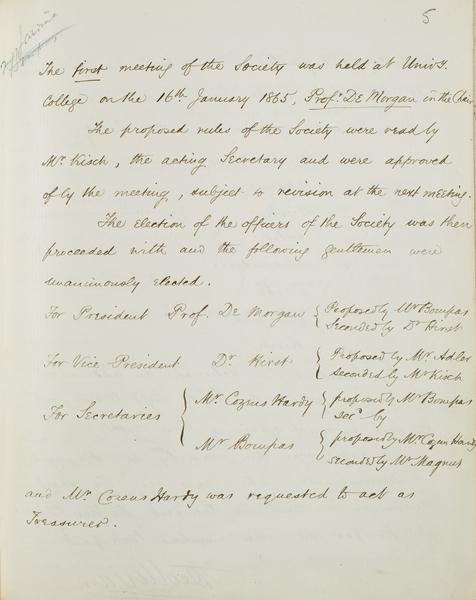 5
The first meeting of the Society was held at Univy.
College on the 16th January 1865, Profr. De Morgan in the Chair
The proposed rules of the Society were read by
Mr. Kisch, the acting Secretary and were approved
of by the meeting, subject to revision at the next meeting.
The election of the officers of the Society was then
proceeded with and the following gentlemen were
unanimously elected.
For President Prof. De Morgan { Proposed by Mr Bompas
Seconded by Dr Hirst
For Vice President Dr. Hirst { Proposed by Mr. Adler
Seconded by Mr Kisch
For Secretaries { Mr. Cozens Hardy { proposed by Mr Bompas
Secd by
Mr Bompas { proposed by Mr. Cozens Hardy
seconded by Mr Magnus
and Mr. Cozens Hardy was requested to act as
Treasurer.